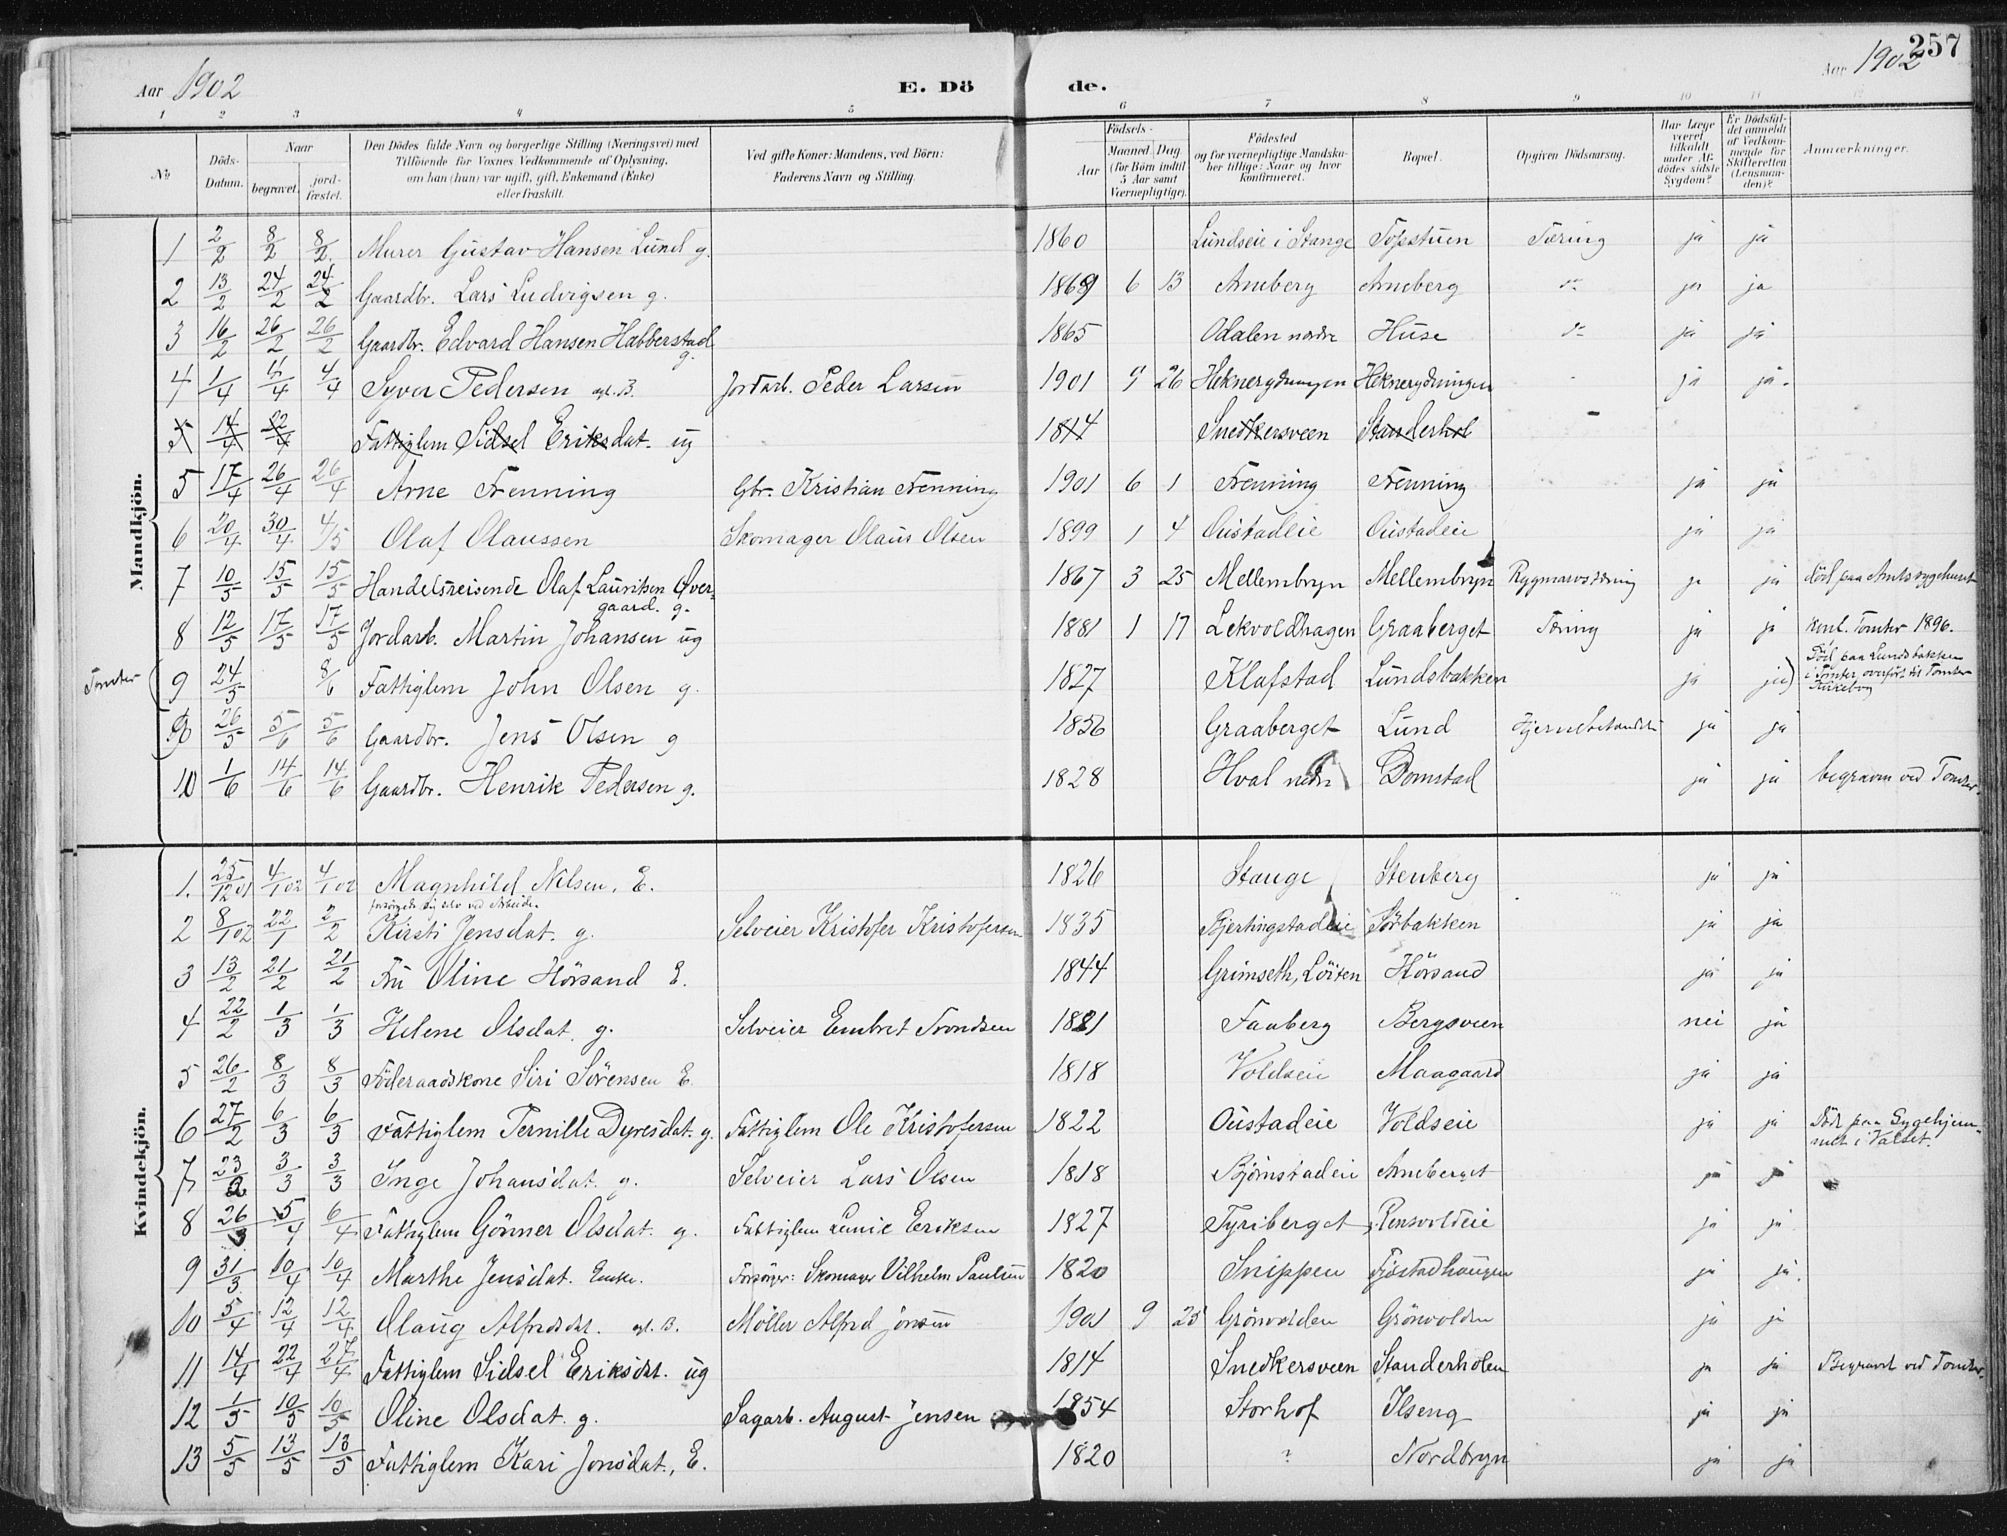 257
Aar 1902 E. Dö de. Aar 1902
1 2 3 4 5 6 7 8 9 10 11 12
No
Döds-Datum.
Naar
begravet.
jord-fæstet.
Den Dödes fulde Navn og borgerlige Stilling (Næringsvei) med
Tilföiende for Voxnes Vedkommende af Oplysning,
om han (hun) var ugift, gift, Enkemand (Enke)
eller fraskilt.
Ved gifte Koner: Mandens, ved Börn:
Faderens Navn og Stilling.
Födsels-
Aar
Maaned Dag
(for Börn indtil
5 Aar samt
Værnepligtige).
Födested
og for værnepligtige Mandska-
ber tillige: Naar og hvor
konfirmeret.
Bopæl.
Opgiven Dödsaarsag.
Har Læge
været
tilkaldt
under Af-
dödes sidste
Sygdom?
Er Dödsfal-
det anmeldt
af Vedkom-
mende for
Skifteretten
(Lensman-
den)?
Anmærkninger.
Mandkjön.
1 2/2 8/2 8/2 Murer Gustav Hansen Lund g. 1860 Lundseie i Stange Tofsstuen Tæring ja ja
2 13/2 24/2 24/2 Gaardbr. Lars Ludvigsen g. 1869 6 13 Arneberg Arneberg do ja ja
3 16/2 26/2 26/2 Gaardbr. Edvard Hansen Habberstad g. 1865 Odalen nordre Huse do ja ja
4 1/4 4/4 Syver Pedersen Jordarb. Peder Larsen 1901 9 26 Heknerydningen Heknerydningen ja ja.
5 14/4 22/4 Fattiglem Sidsel Eriksdat. ug 1814 Snedkersveen Standerhol
5 17/4 26/4 26/4 Arne Frenning Gbr. Kristian Frenning 1901 6 1 Frenning Frenning ja ja
6 20/4 30/4 4/5 Olaf Olaussen Skomager Olaus Olsen 1899 1 4 Oustadeie Oustadeie ja ja
7 10/5 15/5 15/5 Handelsreisende Olaf Lauritsen Øver-
gaard. g. 1867 3 25 Mellembryn Mellembryn Rygmarvstæring ja ja död paa Amtssygehuset
8 12/5 17/5 17/5 Jordarb. Martin Johansen ug 1881 1 17 Lekvoldhagen Graaberget Tæring ja ja konf. Tomter 1896.
Tomter (9 24/5 8/6 Fattiglem John Olsen g. 1827 Klafstad Lundsbakken ja ja) Död paa Lundsbakken
i Tomter, overfört til Tomter
Kirkebog
9 26/5 5/6 5/6 Gaardbr. Jens Olsen g 1856 Graaberget Lund ja ja
10 1/6 14/6 14/6 Gaardbr. Henrik Pedersen g. 1828 Hval nedre Domstad ja ja begraven ved Tomter.
Kvindekjön.
1. 25/12 01 4/1 02 4/1 02 Magnhild Nilsen, E. 1826 Stange Stenberg ja ja
forsörgede sig selv ved Arbeide.
2 8/1 02 22/1 2/2 Kirsti Jensdat. g. Selveier Kristofer Kristofersen 1835 Bjertingstadeie Sörbakken ja ja
3 13/2 21/2 21/2 Fru Oline Hörsand E. 1844 Grimseth, Löiten Hörsand ja ja
4 22/2 1/3 1/3 Helene Olsdat. g. Selveier Embret Trondsen 1821 Faaberg Bergsveen nei ja
5 26/2 8/3 8/3 Föderaadskone Siri Sörensen E. 1818 Voldseie Maagaard ja ja
6 27/2 6/3 6/3 Fattiglem Pernille Dyresdat. g. Fattiglem Ole Kristofersen 1822 Oustadeie Voldseie ja ja Död paa Sygehjem-
met i Valset.
7 23/2 3/3 3/3 Inge Johansdat. g. Selveier Lars Olsen 1818 Björnstadeie Arneberget ja ja
8 26/3 5/4 6/4 Fattiglem Gönner Olsdat. g. Fattiglem Eriksen 1827 Fyriberget Rensvoldeie ja ja
9 31/3 10/4 10/4 Marthe Jensdat. Enke. Forsörger: Skomager Vilhelm Paulsen 1820 Snippen Fjöstadhaugen ja ja.
10 5/4 12/4 12/4 Olaug Alfredsdat. Möller Alfred Jensen 1901 9 25 Grönvolden Grönvolden ja ja
11 14/4 22/4 27/4 Fattiglem Sidsel Eriksdat. ug 1814 Snedkersveen Standerholen ja ja Begravet ved Tomter.
12 1/5 10/5 10/5 Oline Olsdat. g. Sagarb. August Jensen 1854 Storhof Ilseng ja ja
13 5/5 13/5 13/5 Fattiglem Kari Jonsdat., E. 1820 ? Nordbryn ja ja